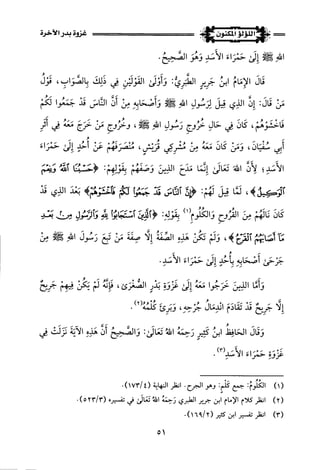 اللؤلؤ المكنون
غزوة بدر الآخرة
الله ﷺ إِلَى حَمْرَاءِ الْأَسَدِ وَهُوَ الصَّحِيحُ.
قَالَ الْإِمَامُ ابْنُ جَرِيرٍ الطَّبَرِيُّ: وَأَوْلَى الْقَوْلَيْنِ فِي ذَلِكَ بِالصَّوَابِ، قَوْلُ
مَنْ قَالَ: إِنَّ الذِي قِيلَ لِرَسُولِ اللهِ ﷺ وَأَصْحَابِهِ مِنْ أَنَّ النَّاسَ قَدْ جَمَعُوا لَكُمْ
فَاخْشَوْهُمْ، كَانَ فِي حَالِ خُرُوجِ رَسُولِ اللهِ ﷺ، وَخُرُوجِ مَنْ خَرَجَ مَعَهُ فِي أَثَرِ
أَبِي سُفْيَانَ، وَمَنْ كَانَ مَعَهُ مِنْ مُشْرِكِي قُرَيْشٍ، مُنْصَرَفَهُمْ عَنْ أُحُدٍ إِلَى حَمْرَاءِ
الْأَسَدِ؛ لِأَنَّ اللهَ تَعَالَى إِنَّمَا مَدَحَ الذِينَ وَصَفَهُمْ بِقَوْلِهِمْ: ﴿حَسْبُنَا اللَّهُ وَنِعْمَ
الْوَكِيلُ﴾، لَمَّا قِيلَ لَهُمْ: ﴿إِنَّ النَّاسَ قَدْ جَمَعُوا لَكُمْ فَاخْشَوْهُمْ﴾ بَعْدَ الذِي قَدْ
كَانَ نَالَهُمْ مِنَ الْقُرُوحِ وَالْكُلُومِ(١) بِقَوْلِهِ: ﴿الَّذِينَ اسْتَجَابُوا لِلَّهِ وَالرَّسُولِ مِنْ بَعْدِ
مَا أَصَابَهُمُ الْقَرْحُ﴾، وَلَمْ تَكُنْ هَذِهِ الصِّفَةُ إِلَّا صِفَةَ مَنْ تَبِعَ رَسُولَ اللهِ ﷺ مِنْ
جَرْحَى أَصْحَابِهِ بِأُحُدٍ إِلَى حَمْرَاءِ الْأَسَدِ.
وَأَمَّا الذِينَ خَرَجُوا مَعَهُ إِلَى غَزْوَةِ بَدْرٍ الصُّغْرَى، فَإِنَّهُ لَمْ يَكُنْ فِيهِمْ جَرِيحٌ
إِلَّا جَرِيحٌ قَدْ تَقَادَمَ انْدِمَالُ جُرْحِهِ، وَبَرِئَ كَلْمُهُ(٢).
وَقَالَ الْحَافِظُ ابْنُ كَثِيرٍ رَحِمَهُ اللهُ تَعَالَى: وَالصَّحِيحُ أَنَّ هَذِهِ الْآيَةَ نَزَلَتْ فِي
غَزْوَةِ حَمْرَاءِ الْأَسَدِ(٣).
(١) الكُلُومُ: جمع كَلْمٍ: وهو الجرح. انظر النهاية (٤/١٧٣).
(٢) انظر كلام الإمام ابن جرير الطبري رَحِمَهُ اللهُ تَعَالَى في تفسيره (٣/٥٢٣).
(٣) انظر تفسير ابن كثير (٢/١٦٩).
٥١